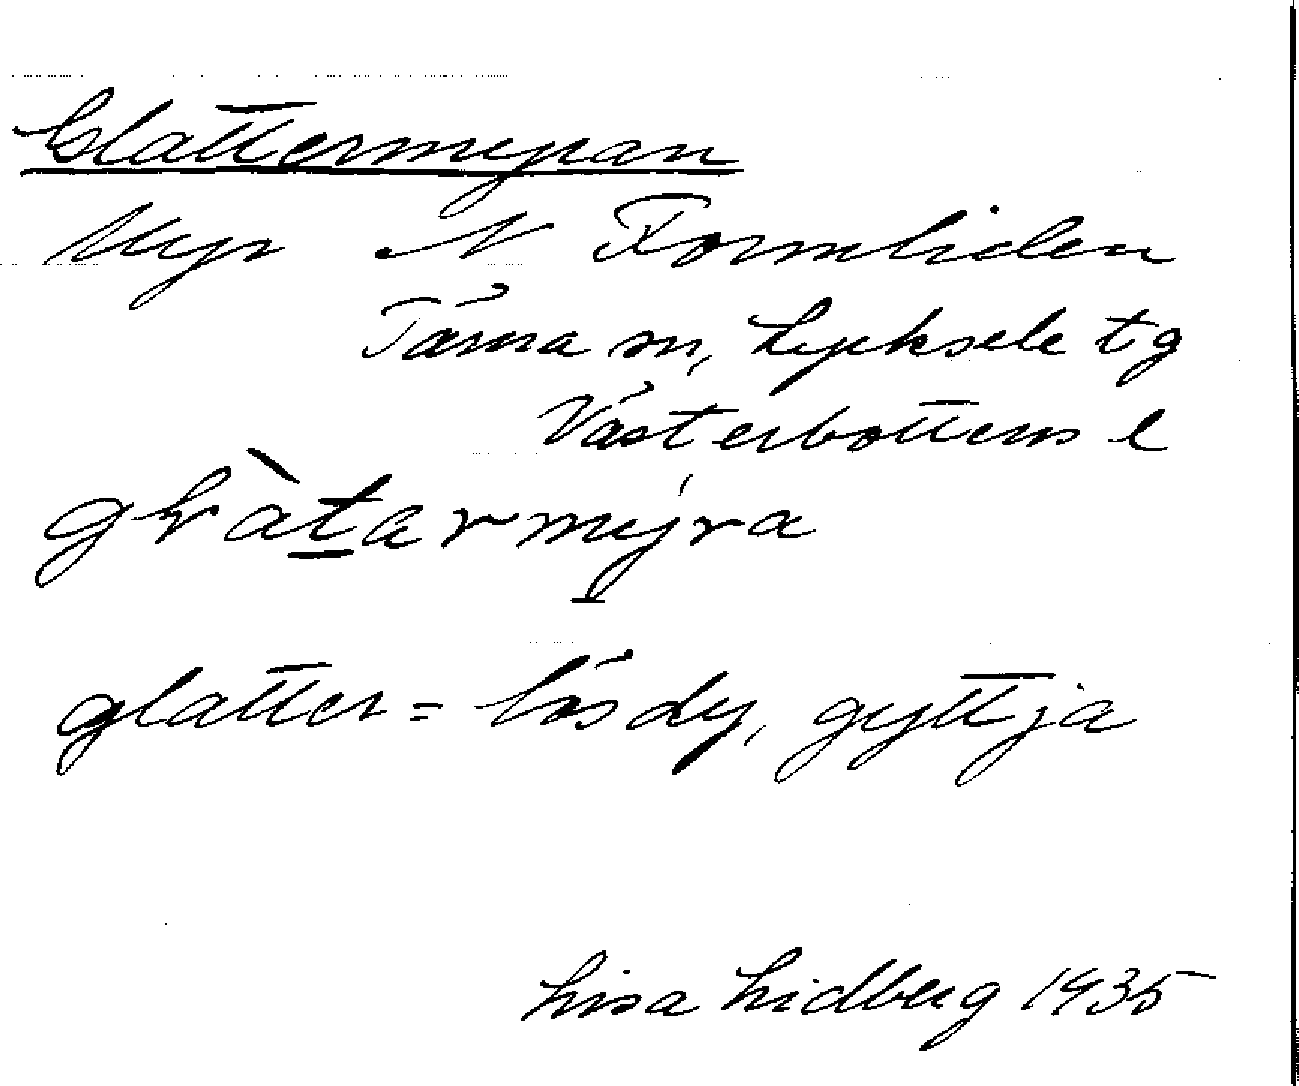 Glattermyran
Myr N Formliden
Tärna sn, Lycksele tg
Västerbottens l
glàtarmýra
glatter = lös dy, gyttja
Lisa Lidberg 1935